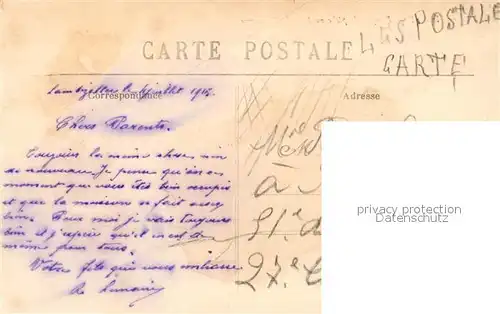 CARTE POSTALE
POSTALE
CARTE
Correspondance
Adresse
juillet 1915
Chers Parents.
Toujours la même chose rien
de nouveau. Je pense qu'en ce
moment que vous êtes bien occupés
et que la moisson se fait assez
bien. Pour moi je vais toujours
bien et j'espère qu'il en est de
même pour tous.
Votre fils qui vous embrasse
à
51e
27e
privacy protection
Datenschutz